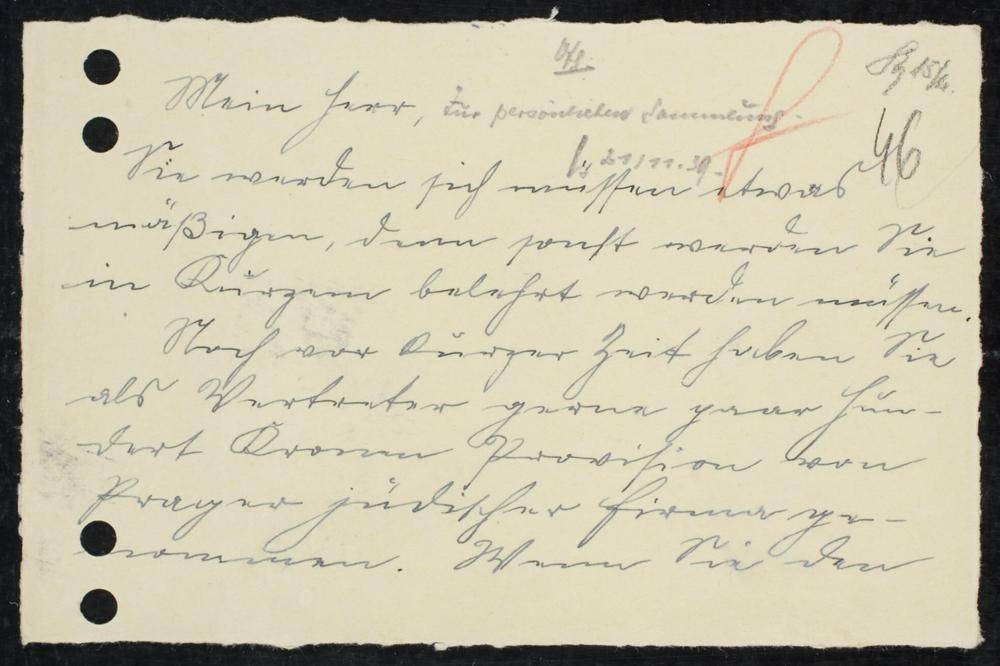 Mein Herr, zur persönlichen Sammlung.
21/11.39.
46
Sie werden sich müssen etwas
mäßigen, denn sonst werden Sie
in Kurzem belehrt werden müssen.
Noch vor kurzer Zeit haben Sie
als Vertreter gerne paar hun-
dert Kronen Provision von
Prager jüdischer Firma ge-
nommen. Wenn Sie den